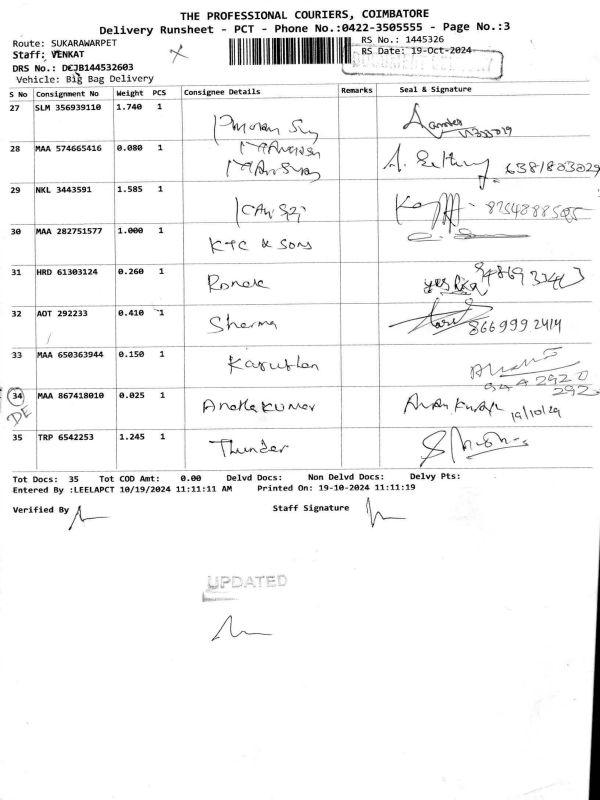 THE PROFESSIONAL COURIERS, COIMBATORE
Delivery Runsheet - PCT - Phone No.:0422-3505555 - Page No.:3
Route: SUKARAWARPET
RS No.: 1445326
Staff: VENKAT
RS Date: 19-Oct-2024
DRS No.: DEJB144532603
Vehicle: Big Bag Delivery
S No Consignment No Weight PCS Consignee Details Remarks Seal & Signature
27 SLM 356939110 1.740 1
28 MAA 574665416 0.080 1 6381803029
29 NKL 3443591 1.585 1
30 MAA 282751577 1.000 1 KTC & Sons
31 HRD 61303124 0.260 1 Ronak
32 AOT 292233 0.410 1 Sharma 8669992414
33 MAA 650363944 0.150 1
34 MAA 867418010 0.025 1
DE
35 TRP 6542253 1.245 1 Thunder
Tot Docs: 35 Tot COD Amt: 0.00 Delvd Docs: Non Delvd Docs: Delvy Pts:
Entered By :LEELAPCT 10/19/2024 11:11:11 AM Printed On: 19-10-2024 11:11:19
Verified By Staff Signature
UPDATED